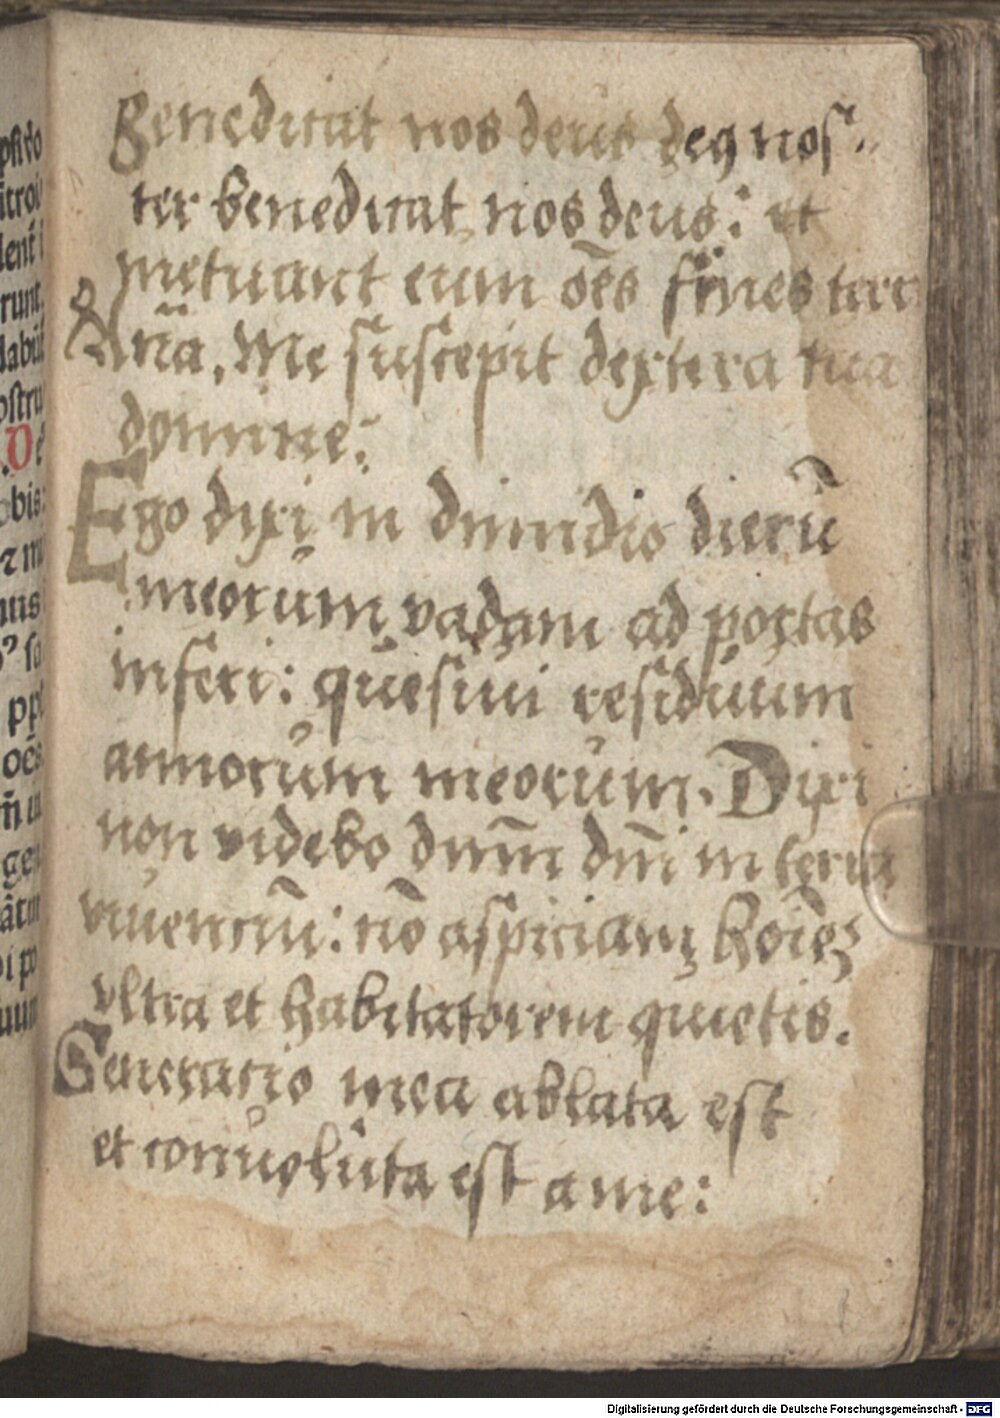 Benedicat nos deus deꝯ nos-
ter benedicat nos deus: et
metuant eum oēs fines terr
Aña. Me suscepit dextera tua
domine:
Ego dixi in dimidio dierū
meorum vadam ad portas
inferi: quesiui residuum
annorum meorum. Dixi
non videbo dnm̄ dm̄ in terra
viuenciū: nō aspiciam hoīeȝ
vltra et habitatorem quietis.
Generacio mea ablata est
et conuoluta est a me:
Digitalisierung gefördert durch die Deutsche Forschungsgemeinschaft - DFG